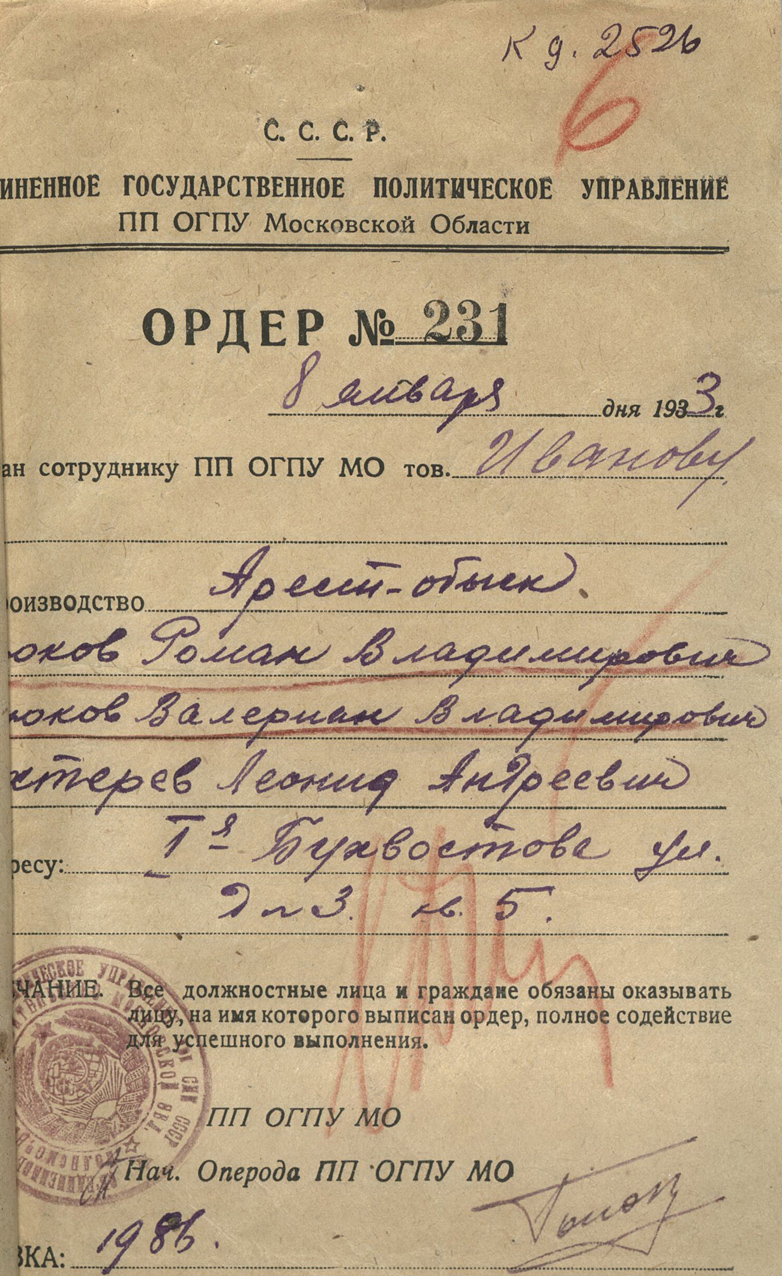 К д. 2526
6
С. С. С. Р.
ИНЕННОЕ ГОСУДАРСТВЕННОЕ ПОЛИТИЧЕСКОЕ УПРАВЛЕНИЕ
ПП ОГПУ Московской Области
ОРДЕР № 231
8 января дня 1933 г
ан сотруднику ПП ОГПУ МО тов. Иванову
оизводство Арест-обыск.
юков Роман Владимирович
юков Валериан Владимирович
хтерев Леонид Андреевич
ресу: 1я Бухвостова ул.
д № 3. кв. 5.
ЧАНИЕ. Все должностные лица и граждане обязаны оказывать
лицу, на имя которого выписан ордер, полное содействие
для успешного выполнения.
ПП ОГПУ МО
Нач. Оперода ПП ОГПУ МО
ВКА: 198б.